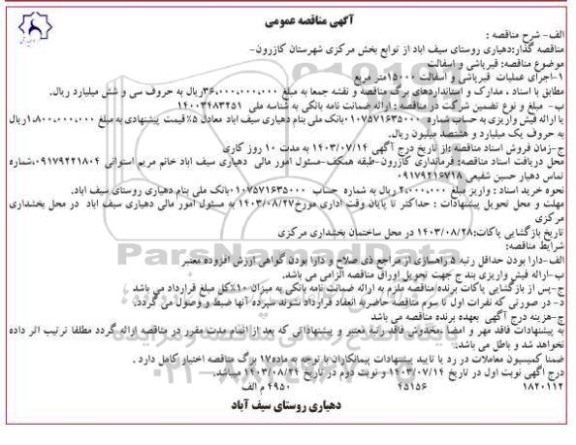 آگهی مناقصه عمومی
الف- شرح مناقصه :
مناقصه گذار:دهیاری روستای سیف اباد از توابع بخش مرکزی شهرستان کازرون-
موضوع مناقصه: قیرپاشی و آسفالت
۱-اجرای عملیات قیرپاشی و آسفالت ۱۵۰۰۰متر مربع
مطابق با اسناد ، مدارک و استانداردهای برگ مناقصه و نقشه جمعا به مبلغ ۳۶،۰۰۰،۰۰۰،۰۰۰ریال به حروف سی و شش میلیارد ریال.
ب- مبلغ و نوع تضمین شرکت در مناقصه : ارائه ضمانت نامه بانکی به شناسه ملی ۱۴۰۰۳۴۸۳۴۵۱
یا ارائه فیش واریزی به حساب شماره ۰۱۰۷۵۷۱۶۳۵۰۰۰بانک ملی بنام دهیاری سیف اباد معادل ۵٪ قیمت پیشنهادی به مبلغ ۱،۸۰۰،۰۰۰،۰۰۰ریال
به حروف یک میلیارد و هشتصد میلیون ریال.
ج-زمان فروش اسناد مناقصه :از تاریخ درج آگهی ۱۴۰۳/۰۷/۱۴ به مدت ۱۰ روز کاری
محل دریافت اسناد مناقصه: فرمانداری کازرون-طبقه همکف-مسئول امور مالی دهیاری سیف اباد خانم مریم استوانی ۰۹۱۷۹۴۲۱۸۰۴،شماره
تماس دهیار حسین شفیعی ۰۹۱۷۹۲۱۶۷۱۸
نحوه خرید اسناد : واریز مبلغ ۲،۰۰۰،۰۰۰ ریال به شماره حساب ۰۱۰۷۵۷۱۶۳۵۰۰۰بانک ملی بنام دهیاری روستای سیف آباد.
مهلت و محل تحویل پیشنهادات : حداکثر تا پایان وقت اداری مورخ۱۴۰۳/۰۸/۲۷ به مسئول امور مالی دهیاری سیف اباد در محل بخشداری
مرکزی
تاریخ بازگشایی پاکات:۱۴۰۳/۰۸/۲۸ در محل ساختمان بخشداری مرکزی
شرایط مناقصه:
الف-دارا بودن حداقل رتبه ۵ راهسازی از مراجع ذی صلاح و دارا بودن گواهی ارزش افزوده معتبر
ب-ارائه فیش واریزی بند ج جهت تحویل اوراق مناقصه الزامی می باشد.
ج-پس از بازگشایی پاکات برنده مناقصه ملزم به ارائه ضمانت نامه بانکی به میزان ۱۰٪کل مبلغ قرارداد می باشد
د- در صورتی که نفرات اول تا سوم مناقصه حاضر به انعقاد قرارداد نشوند سپرده آنها ضبط و وصول می گردد.
ح-هزینه درج آگهی بعهده برنده مناقصه می باشد
به پیشنهادات فاقد مهر و امضا ،مخدوش فاقد رتبه معتبر و پیشنهاداتی که بعد از اتمام مدت مقرر در مناقصه ارائه گردد مطلقا ترتیب اثر داده
نخواهد شد و باطل می باشد.
ضمنا کمیسیون معاملات در رد یا تایید پیشنهادات پیمانکاران با توجه به ماده۱۷ برگ مناقصه اختیار کامل دارد .
درج آگهی نوبت اول در تاریخ ۱۴۰۳/۰۷/۱۴ و نوبت دوم در تاریخ ۱۴۰۳/۰۸/۲۴ میباشد.
۱۸۲۰۱۱۲ ۴۵۱۵۶ ۴۹۵۰ م الف
دهیاری روستای سیف آباد
ParsNamadData